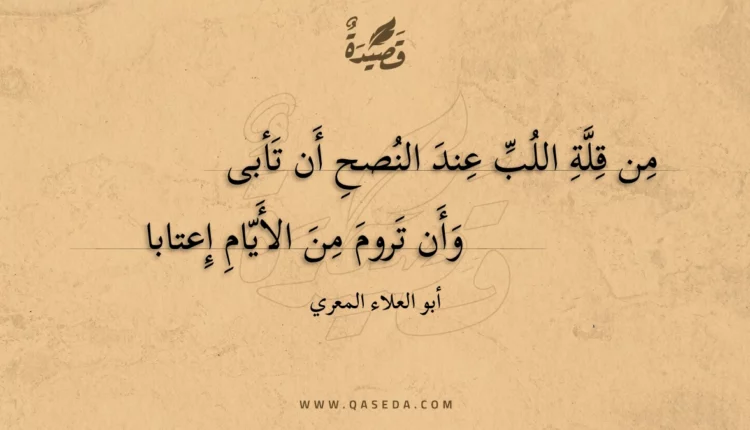 قَصِيدَةٌ
مِن قِلَّةِ اللُبِّ عِندَ النُصحِ أَن تَأبى
وَأَن تَرومَ مِنَ الأَيّامِ إِعتابا
أبو العلاء المعري
WWW.QASEDA.COM